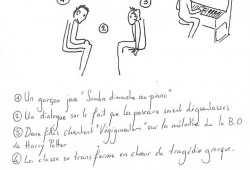 ②
③
① Un garçon joue "Sombre dimanche au piano"
② Un dialogue sur le fait que les poireaux soient dégueulasses
③ Deux filles chantent " " sur la mélodie de la B.O
de Harry Potter
④ La classe se transforme en chœur de tragédie grecque.